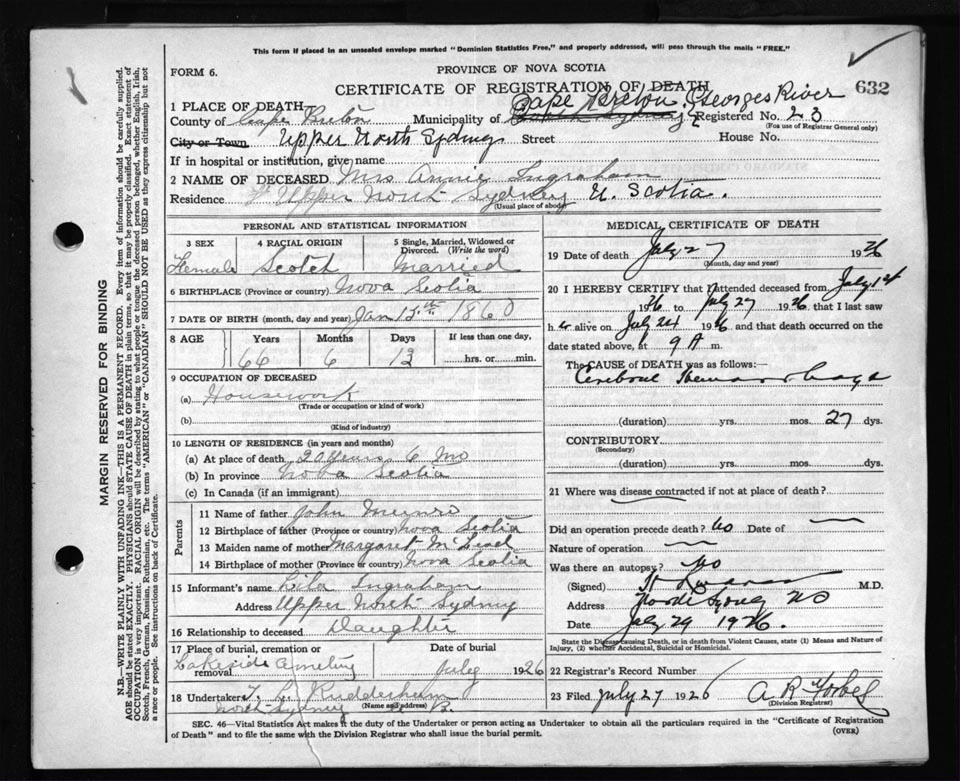 This form if placed in an unsealed envelope marked "Dominion Statistics Free," and properly addressed, will pass through the mails "FREE."
FORM 6.
PROVINCE OF NOVA SCOTIA
CERTIFICATE OF REGISTRATION OF DEATH
632
Cape Breton, Georges River
1 PLACE OF DEATH
County of Cape Breton Municipality of North Sydney Registered No. 23
(For use of Registrar General only)
City or Town. Upper North Sydney Street House No.
If in hospital or institution, give name
2 NAME OF DECEASED Mrs Annie Ingraham
Residence Upper North Sydney N. Scotia.
(Usual place of abode)
PERSONAL AND STATISTICAL INFORMATION
3 SEX Female
4 RACIAL ORIGIN Scotch
5 Single, Married, Widowed or Divorced. (Write the word) Married
6 BIRTHPLACE (Province or country) Nova Scotia
7 DATE OF BIRTH (month, day and year) Jan 15th 1860
8 AGE Years Months Days If less than one day,
66 6 12 hrs. or min.
9 OCCUPATION OF DECEASED
(a) Housework
(Trade or occupation or kind of work)
(b)
(Kind of industry)
10 LENGTH OF RESIDENCE (in years and months)
(a) At place of death 20 years 6 Mo
(b) In province Nova Scotia
(c) In Canada (if an immigrant)
Parents
11 Name of father John Munro
12 Birthplace of father (Province or country) Nova Scotia
13 Maiden name of mother Margaret McLeod
14 Birthplace of mother (Province or country) Nova Scotia
15 Informant's name Ingraham
Address Upper North Sydney
16 Relationship to deceased Daughter
17 Place of burial, cremation or removal Lakeside
Date of burial July 1926
18 Undertaker
North Sydney
(Name and address)
MEDICAL CERTIFICATE OF DEATH
19 Date of death July 27 1926
(Month, day and year)
20 I HEREBY CERTIFY that I attended deceased from July 1st
1926 to July 27 1926 that I last saw
her alive on July 24 1926 and that death occurred on the
date stated above, at 9 A m.
The CAUSE OF DEATH was as follows:
Cerebral Hemorrhage
(duration) yrs. mos. 27 dys.
CONTRIBUTORY
(Secondary)
(duration) yrs. mos. dys.
21 Where was disease contracted if not at place of death?
Did an operation precede death? No Date of
Nature of operation
Was there an autopsy? No
(Signed) M.D.
Address North Sydney NS
Date July 29 1926.
State the Disease causing Death, or in death from Violent Causes, state (1) Means and Nature of
Injury, (2) whether Accidental, Suicidal or Homicidal.
22 Registrar's Record Number
23 Filed July 27 1926 A R Forbes
(Division Registrar)
SEC. 46—Vital Statistics Act makes it the duty of the Undertaker or person acting as Undertaker to obtain all the particulars required in the "Certificate of Registration
of Death" and to file the same with the Division Registrar who shall issue the burial permit.
(OVER)
MARGIN RESERVED FOR BINDING
N.B.—WRITE PLAINLY WITH UNFADING INK—THIS IS A PERMANENT RECORD. Every item of information should be carefully supplied.
AGE should be stated EXACTLY. PHYSICIANS should STATE CAUSE OF DEATH in plain terms, so that it may be properly classified. Exact statement of
OCCUPATION is very important. RACIAL ORIGIN will be described by stating to what people or tongue the deceased person belonged, whether English, Irish,
Scotch, French, German, Russian, Ruthenian, etc. The terms "AMERICAN" or "CANADIAN" SHOULD NOT BE USED as they express citizenship but not
a race or people. See instructions on back of Certificate.